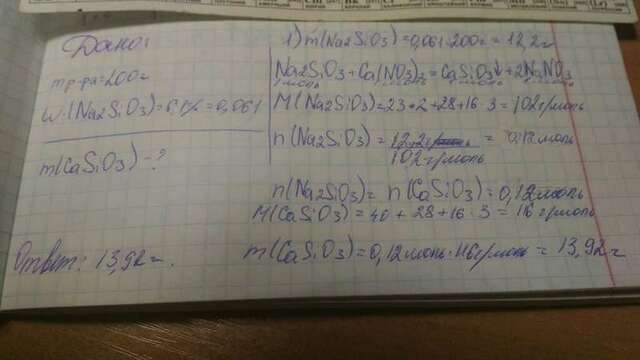 Дано:
mр-ра=200г
ω(Na2SiO3)=6,1%=0,061
m(CaSiO3)-?
1) m(Na2SiO3)=0,061·200г=12,2г
Na2SiO3+Ca(NO3)2=CaSiO3↓+2NaNO3
1моль 1моль 1моль 2моль
M(Na2SiO3)=23+2+28+16·3=102г/моль
n(Na2SiO3)=12,2г/102г/моль=0,12моль
n(Na2SiO3)=n(CaSiO3)=0,12моль
M(CaSiO3)=40+28+16·3=116г/моль
m(CaSiO3)=0,12моль·116г/моль=13,92г
Ответ: 13,92г.